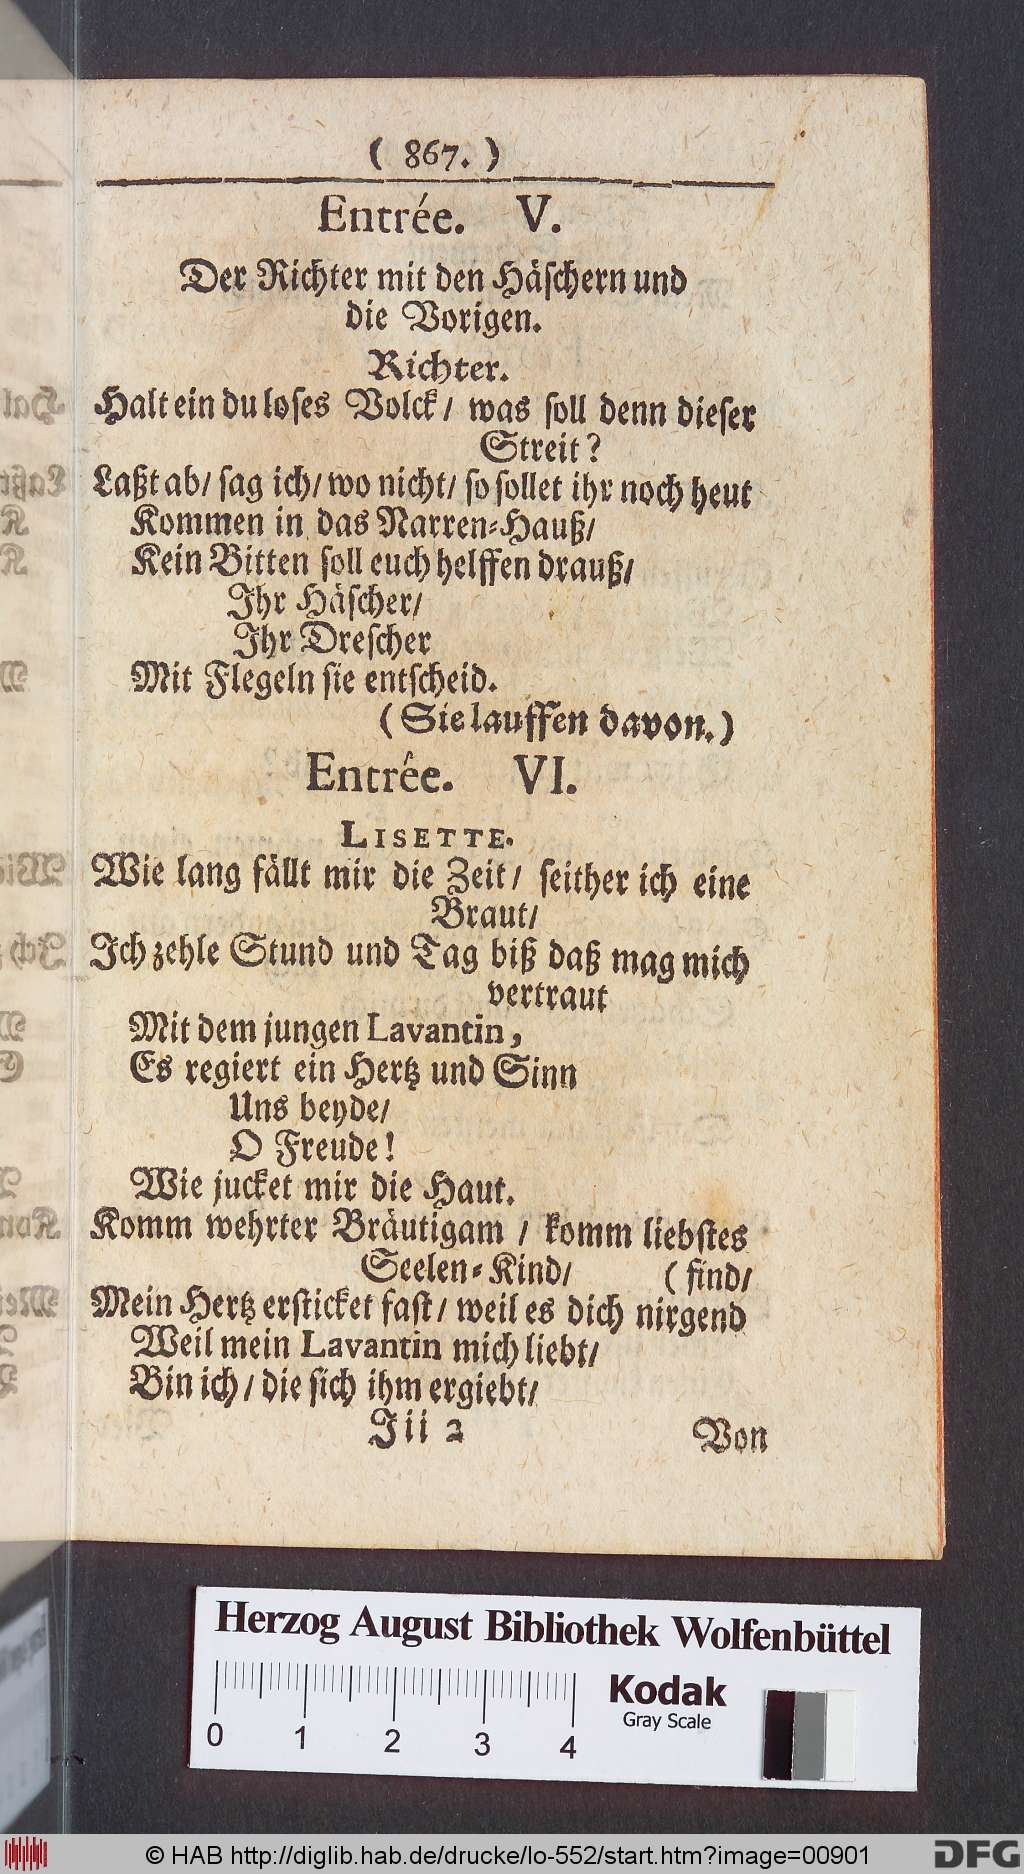 ( 867. )
Entrée. V.
Der Richter mit den Häschern und
die Vorigen.
Richter.
Halt ein du loses Volck / was soll denn dieser
Streit?
Laßt ab / sag ich / wo nicht / so sollet ihr noch heut
Kommen in das Narren-Hauß /
Kein Bitten soll euch helffen drauß /
Ihr Häscher /
Ihr Drescher
Mit Flegeln sie entscheid.
(Sie lauffen davon.)
Entrêe. VI.
LISETTE.
Wie lang fällt mir die Zeit / seither ich eine
Braut /
Ich zehle Stund und Tag biß daß mag mich
vertraut
Mit dem jungen Lavantin,
Es regiert ein Hertz und Sinn
Uns beyde /
O Freude!
Wie jucket mir die Haut.
Komm wehrter Bräutigam / komm liebstes
Seelen-Kind / ( find /
Mein Hertz ersticket fast / weil es dich nirgend
Weil mein Lavantin mich liebt /
Bin ich / die sich ihm ergiebt /
Iii 2 Von
Herzog August Bibliothek Wolfenbüttel
0 1 2 3 4
Kodak
Gray Scale
© HAB http://diglib.hab.de/drucke/lo-552/start.htm?image=00901
DFG